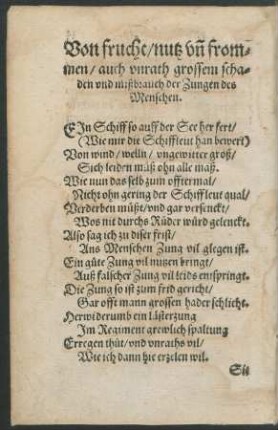 Von frucht/ nutz vñ from-
men/ auch vnrath grossem scha-
den vnd mißbrauch der Zungen des
Menschen.
EIn Schiff so auff der See her fert/
(Wie mir die Schiffleut han bewert)
Von wind/ welln/ vngewitter groß/
Sich leiden můß ohn alle maß.
Wie nun das selb zum offtermal/
Nicht ohn gering der Schiffleut qual/
Verderben můßt/ vnd gar versenckt/
Wos nit durchs Růder würd gelenckt.
Also sag ich zu diser frist/
Ans Menschen Zung vil glegen ist.
Ein gůte Zung vil nutzen bringt/
Auß falscher Zung vil leids entspringt.
Die Zung so ist zum frid gericht/
Gar offt mann grossen hader schlicht.
Herwiderumb ein Lästerzung
Im Regiment grewlich spaltung
Erregen thůt/ vnd vnraths vil/
Wie ich dann hie erzelen wil.
Sit